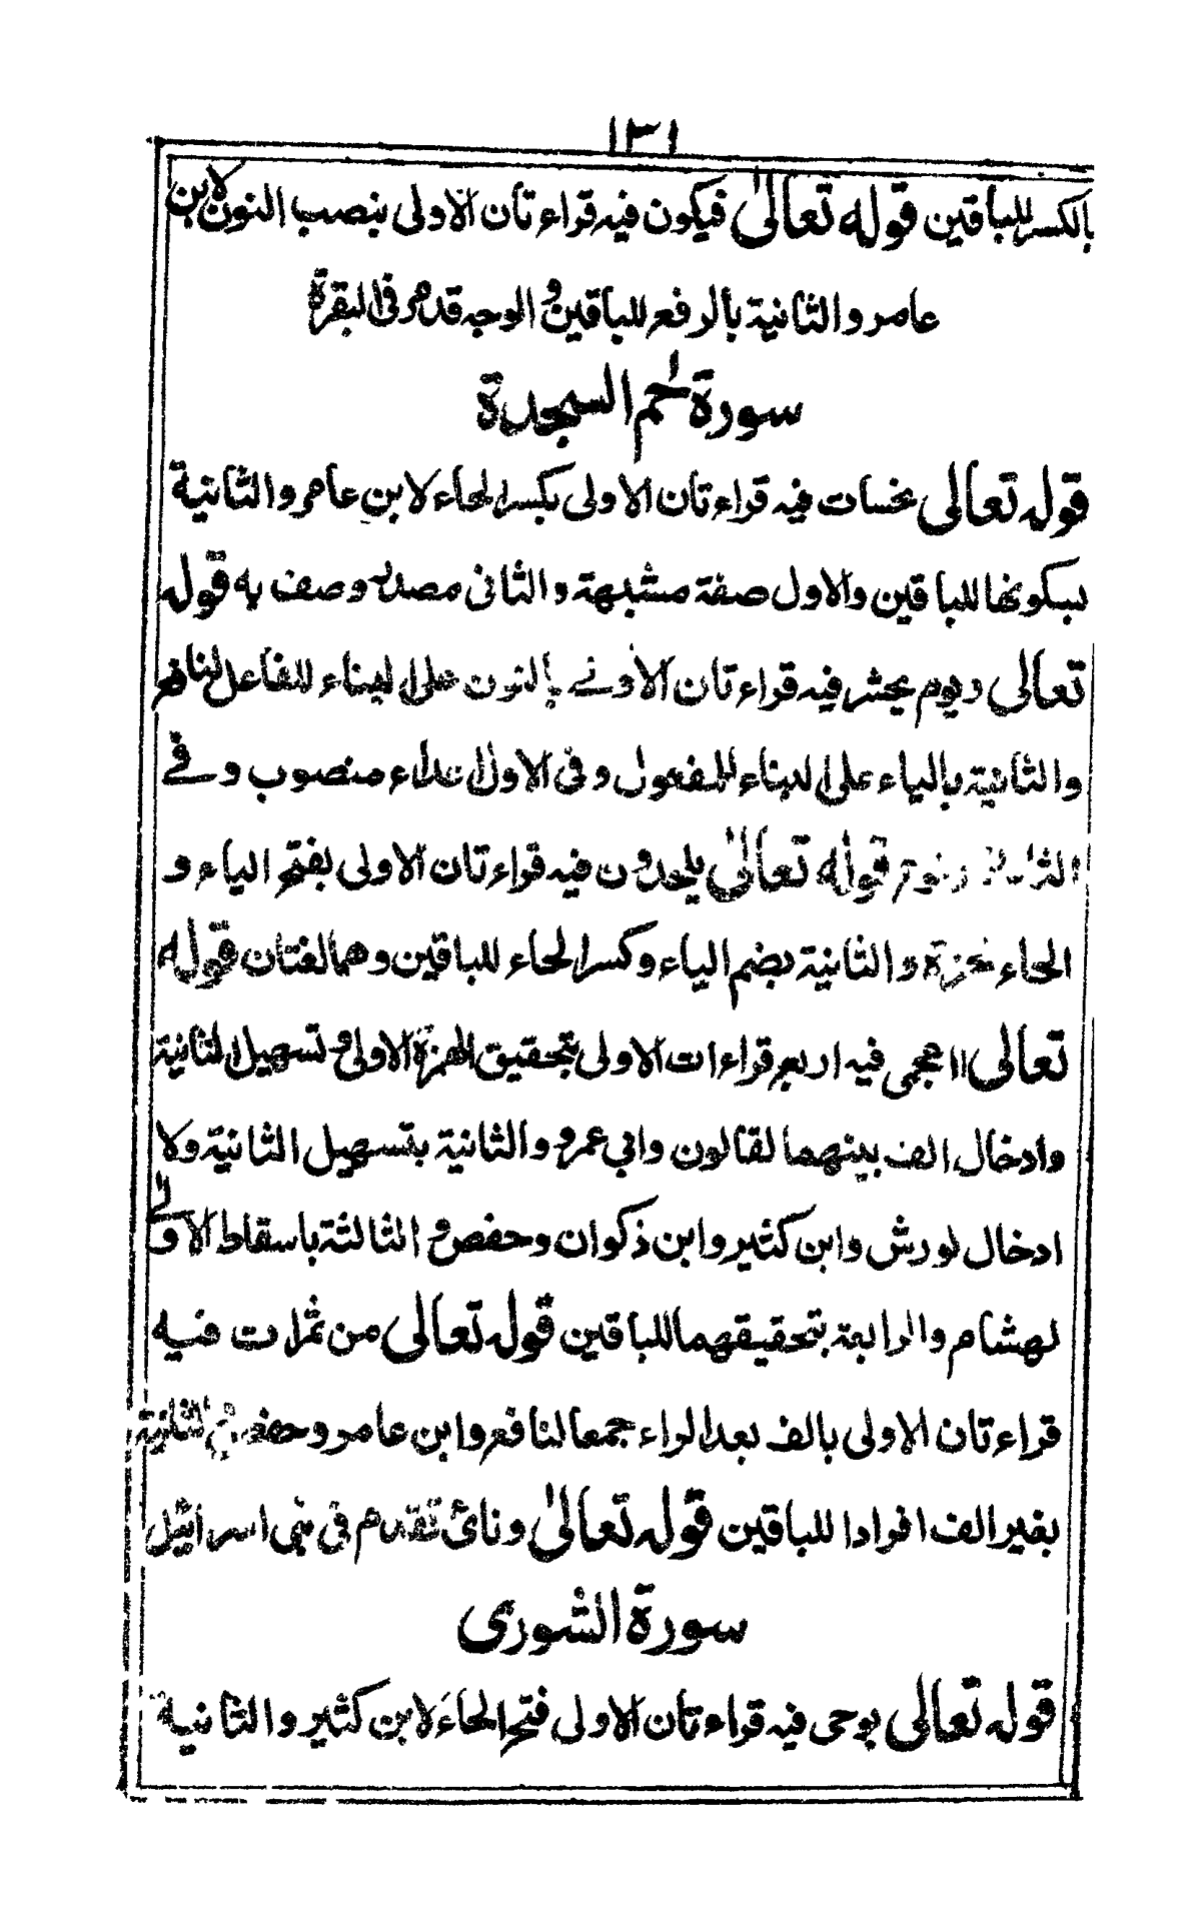 ١٣١
بالكسر للباقين قوله تعالى فيكون فيه قراءتان الاولى بنصب النون لابن
عامر والثانية بالرفع للباقين والوجه قد مر فى البقرة
سورة حم السجدة
قوله تعالى نحسات فيه قراءتان الاولى بكسر الحاء لابن عامر والثانية
بسكونها للباقين والاول صفة مشبهة والثانى مصدر وصف به قوله
تعالى ويوم يحشر فيه قراءتان الاولے بالنون على البناء للفاعل لنافع
والثانية بالياء على البناء للمفعول وفى الاول اعداء منصوب وفے
قوله تعالى يلحدون فيه قراءتان الاولى بفتح الياء و
الحاء لحمزة والثانية بضم الياء وكسر الحاء للباقين وهما لغتان قوله
تعالى ااعجمى فيه اربع قراءات الاولى بتحقيق الهمزة الاولى وتسهيل الثانية
وادخال الف بينهما لقالون وابي عمرو والثانية بتسهيل الثانية ولا
ادخال لورش وابن كثير وابن ذكوان وحفص والثالثة باسقاط الاولے
لهشام والرابعة بتحقيقهما للباقين قوله تعالى من ثمرات فيه
قراءتان الاولى بالف بعد الراء جمعا لنافع وابن عامر وحفص والثانية
بغير الف افرادا للباقين قوله تعالى ونائ تقدم فى بنى اسرائيل
سورة الشورى
قوله تعالى يوحى فيه قراءتان الاولى فتح الحاء لابن كثير والثانية